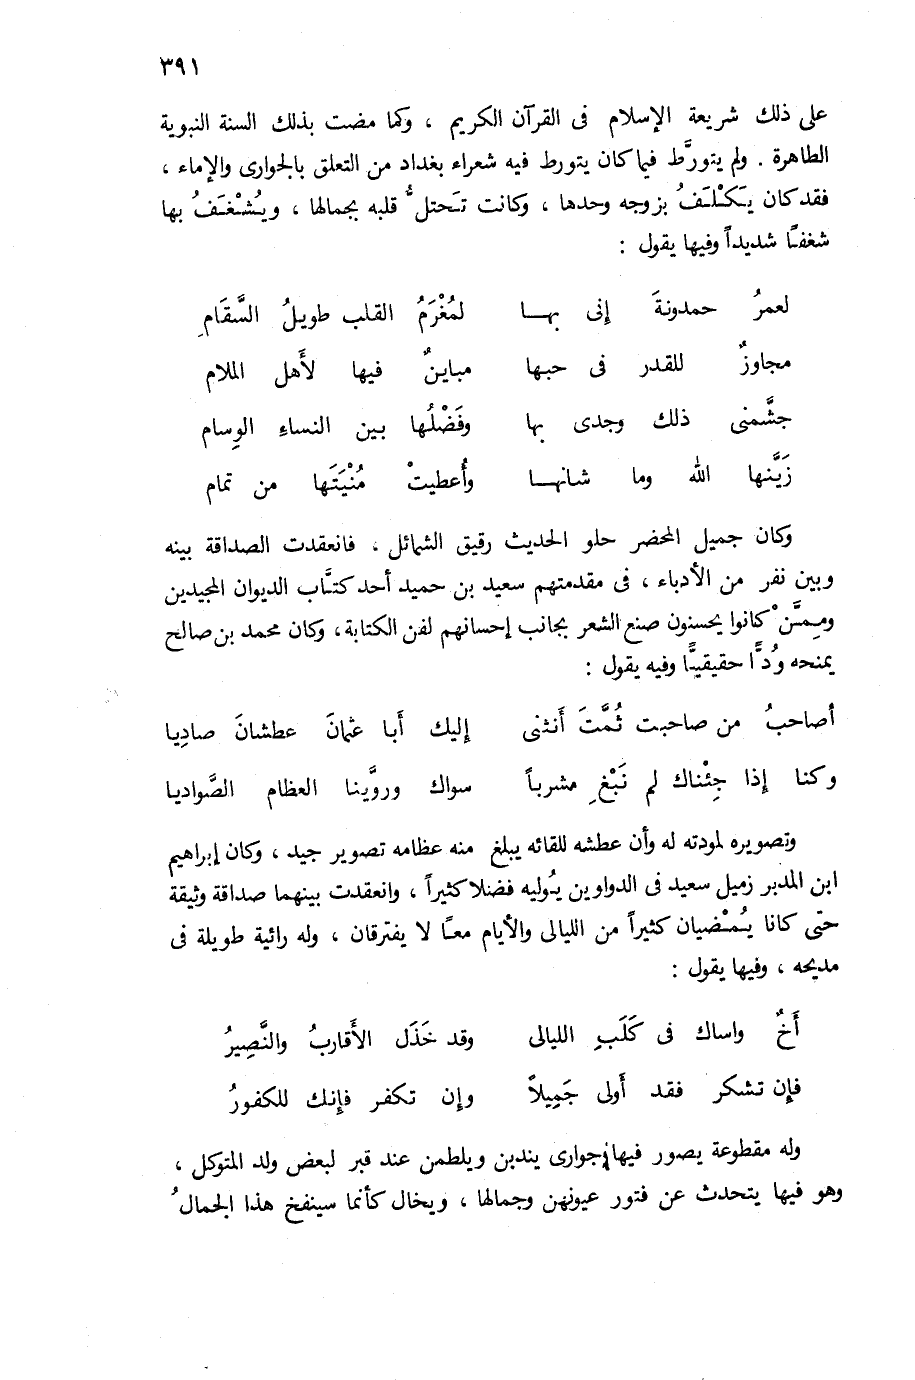 ٣٩١
على ذلك شريعة الإسلام فى القرآن الكريم ، وكما مضت بذلك السنة النبوية
الطاهرة . ولم يتورَّط فيما كان يتورط فيه شعراء بغداد من التعلق بالجوارى والإماء ،
فقد كان يَكْلَفُ بزوجه وحدها ، وكانت تَحتلُّ قلبه بجمالها ، ويُشْغَفُ بها
شغفًا شديداً وفيها يقول :
لعمرُ حمدونةَ إنى بهـــا لمُغْرَمُ القلب طويلُ السَّقَامِ
مجاوزٌ للقدر فى حبها مباينٌ فيها لأَهل الملام
جشَّمنى ذلك وجدى بها وفَضْلُها بين النساءِ الوِسام
زَيَّنها الله وما شانهـــا وأُعطيتْ مُنْيَتَها من تمام
وكان جميل المحضر حلو الحديث رقيق الشمائل ، فانعقدت الصداقة بينه
وبين نفر من الأدباء ، فى مقدمتهم سعيد بن حميد أحد كتَّاب الديوان المجيدين
وممَّنْ كانوا يحسنون صنع الشعر بجانب إحسانهم لفن الكتابة، وكان محمد بن صالح
يمنحه وُدًّا حقيقيًّا وفيه يقول :
أصاحبُ من صاحبت ثُمَّتَ أَنثنى إليك أَبا عثمانَ عطشانَ صادِيا
وكنا إذا جِئْناك لم نَبْغِ مشرباً سواك وروَّينا العظام الصَّواديا
وتصويره لمودته له وأن عطشه للقائه يبلغ منه عظامه تصوير جيد ، وكان إبراهيم
ابن المدبر زميل سعيد فى الدواوين يُوليه فضلا كثيراً ، وانعقدت بينهما صداقة وثيقة
حتى كانا يُمْضيان كثيراً من الليالى والأيام معًا لا يفترقان ، وله رائية طويلة فى
مديحه ، وفيها يقول :
أَخٌ واساك فى كَلَبِ الليالى وقد خَذَل الأَقاربُ والنَّصِيرُ
فإن تشكر فقد أَولى جَمِيلاً وإن تكفر فإنك للكفورُ
وله مقطوعة يصور فيها جوارى يندبن ويلطمن عند قبر لبعض ولد المتوكل ،
وهو فيها يتحدث عن فتور عيونهن وجمالها ، ويخال كأنما سينفخ هذا الجمالُ